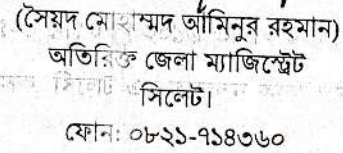 (সৈয়দ মোহাম্মদ আমিনুর রহমান)
অতিরিক্ত জেলা ম্যাজিস্ট্রেট
সিলেট।
ফোন: ০৮২১-৭১৪৩৬০